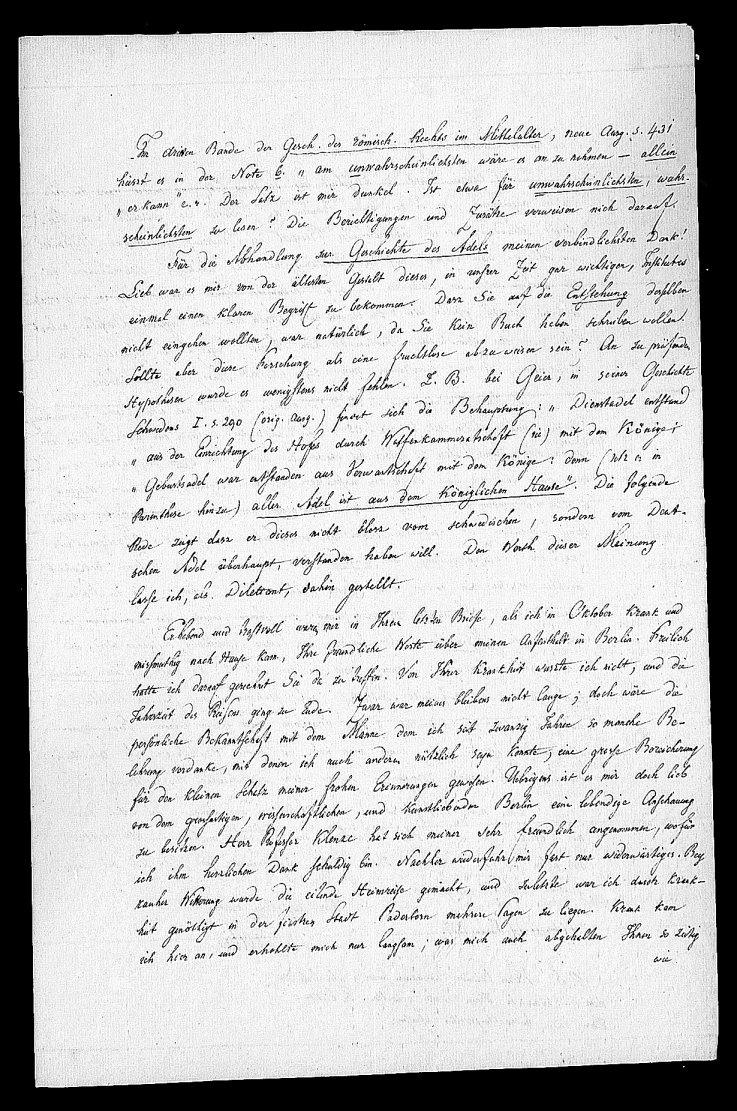 Im dritten Bande der Gesch. des römisch. Rechts im Mittelalter, neue Ausg. S. 431
heisst es in der Note 6. „am unwahrscheinlichsten wäre es an zu nehmen — allein
„er kann" e.v. Der Satz ist mir dunkel. Ist etwa für unwahrscheinlichsten, wahr-
scheinlichsten zu lesen? Die Berichtigungen und Zusätze verweisen mich darauf.
Für die Abhandlung zur Geschichte des Adels meinen verbindlichsten Dank!
Lieb war es mir von der ältesten Gestalt dieses, in unsrer Zeit gar wichtigen, Institutes
einmal einen klaren Begriff zu bekommen. Dasz Sie auf die Entstehung desselben
nicht eingehen wollten, war natürlich, da Sie kein Buch haben schreiben wollen.
Sollte aber diese Forschung als eine fruchtlose abzuweisen sein? An zu prüfenden
Hypothesen würde es wenigstens nicht fehlen. Z. B. bei Geier, in seiner Geschichte
Schwedens I. S. 290 (orig. Ausg.) findet sich die Behauptung: „Dienstadel entstand
„aus der Einrichtung des Hofes durch Waffenkammeratschaft (sic) mit dem Könige;
„Geburtsadel war entstanden aus Verwantschaft mit dem Könige: denn (setzt er in
Parenthese hinzu) aller Adel ist aus dem Königlichen Hause". Die folgende
Rede zeigt dasz er dieses nicht blosz vom schwedischen, sondern vom Deut-
schen Adel überhaupt verstanden haben will. Den Werth dieser Meinung
lasse ich, als Diletant, dahin gestellt.
Erhebend und trostvoll waren mir in Ihrem letzten Briefe, als ich in Oktober krank und
missmuthig nach Hause kam, Ihre freundliche Worte über meinen Aufenthalt in Berlin. Freilich
hatte ich darauf gerechnet Sie da zu treffen. Von Ihrer Krankheit wuszte ich nicht, und die
Jahrszeit des Reisens ging zu Ende. Zwar war meines bleibens nicht lange; doch wäre die
persönliche Bekanntschaft mit dem Manne dem ich seit zwanzig Jahren so manche Be-
lehrung verdanke, mit denen ich auch anderen nützlich seyn konnte, eine grosse Bereicherung
für den kleinen Schatz meiner frohen Erinnerungen gewesen. Uebrigens ist es mir doch lieb
von dem groszartigen, wissenschaftlichen, und kunstliebenden Berlin eine lebendige Anschauung
zu besitzen. Herr Professor Klenze hat sich meiner sehr freundlich angenommen, wofür
ich ihm herzlichen Dank schuldig bin. Nachher wiederfuhr mir fast nur widerwärtiges. Bey
rauher Witterung wurde die eilende Heimreise gemacht, und zuletzt war ich durch Krank-
heit genöthigt in der finstren Stadt Paderborn mehrere Tagen zu liegen. Krank kam
ich hier an, und erhohlte mich nur langsam; was mich auch abgehalten Ihnen so zeitig
wie